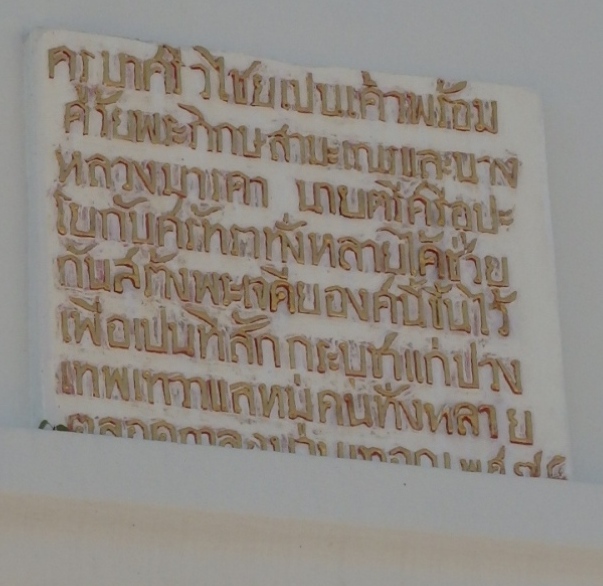 ครูบาศรีวิไชยเปนเค้าพร้อม
ด้วยพระภิกษุสามะเณรและนาง
หลวงบารดา นายศรีศิริอุปะ
โยกับศรัทธาทั้งหลายได้ช่วย
กันสร้างพระเจดีย์องค์นี้ขึ้นไว้
เพื่อเปนที่สักกระบูชาแก่ปวง
เทพเทวาแลหมู่คนทั้งหลาย
ตลอดกาล